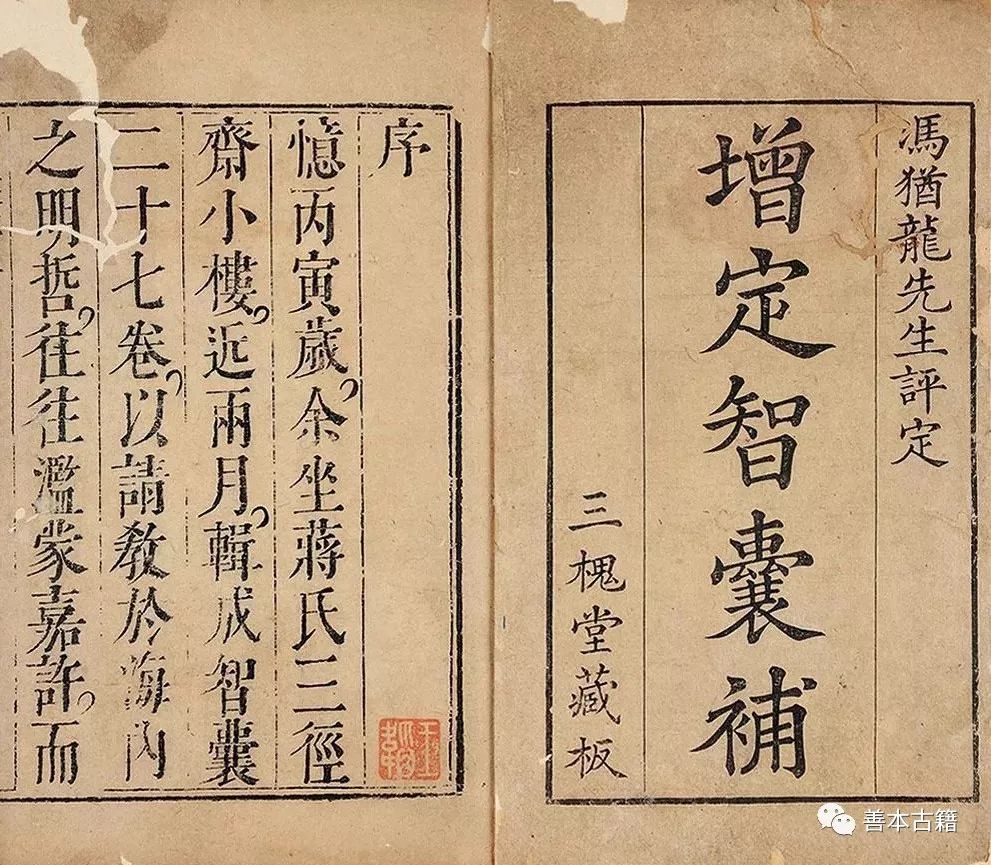 馮猶龍先生評定
增定智囊補
三槐堂藏板
序
憶丙寅歲余坐蔣氏三徑
齋小樓近兩月輯成智囊
二十七卷以請教於海內
之明哲往往濫蒙嘉許而
善本古籍